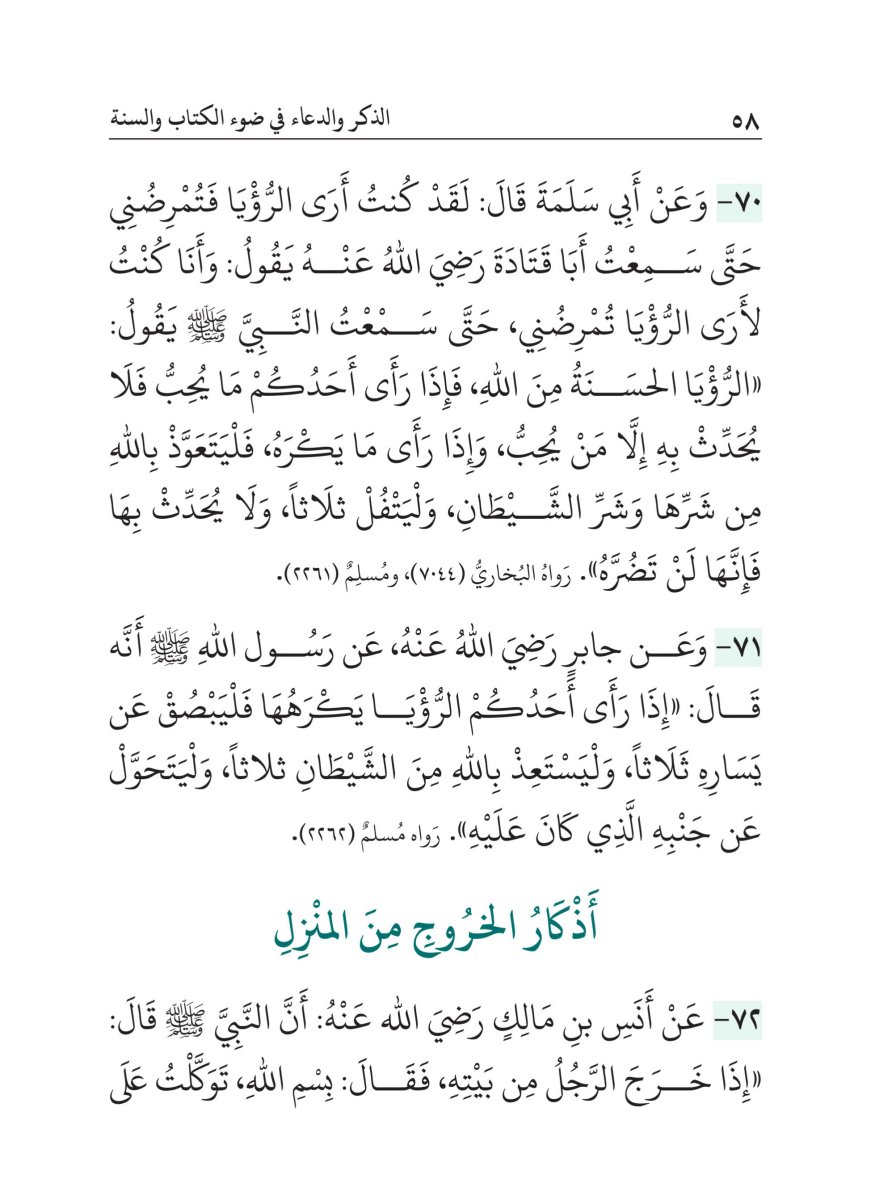 ٥٨ الذكر والدعاء في ضوء الكتاب والسنة
٧٠- وَعَنْ أَبِي سَلَمَةَ قَالَ: لَقَدْ كُنتُ أَرَى الرُّؤْيَا فَتُمْرِضُنِي
حَتَّى سَمِعْتُ أَبَا قَتَادَةَ رَضِيَ اللهُ عَنْهُ يَقُولُ: وَأَنَا كُنْتُ
لأَرَى الرُّؤْيَا تُمْرِضُنِي، حَتَّى سَمْعْتُ النَّبِيَّ ﷺ يَقُولُ:
«الرُّؤْيَا الحسَنَةُ مِنَ اللهِ، فَإِذَا رَأَى أَحَدُكُمْ مَا يُحِبُّ فَلَا
يُحَدِّثْ بِهِ إِلَّا مَنْ يُحِبُّ، وَإِذَا رَأَى مَا يَكْرَهُ، فَلْيَتَعَوَّذْ بِاللهِ
مِن شَرِّهَا وَشَرِّ الشَّيْطَانِ، وَلْيَتْفُلْ ثلَاثاً، وَلَا يُحَدِّثْ بِهَا
فَإِنَّهَا لَنْ تَضُرَّهُ». رَواهُ البُخاريُّ (٧٠٤٤)، ومُسلِمٌ (٢٢٦١).
٧١- وَعَن جابرٍ رَضِيَ اللهُ عَنْهُ، عَن رَسُول اللهِ ﷺ أَنَّه
قَالَ: «إِذَا رَأَى أَحَدُكُمْ الرُّؤْيَا يَكْرَهُهَا فَلْيَبْصُقْ عَن
يَسَارِهِ ثَلَاثاً، وَلْيَسْتَعِذْ بِاللهِ مِنَ الشَّيْطَانِ ثلاثاً، وَلْيَتَحَوَّلْ
عَن جَنْبِهِ الَّذِي كَانَ عَلَيْهِ». رَواه مُسلمٌ (٢٢٦٢).
أَذْكَارُ الخرُوجِ مِنَ المنْزِلِ
٧٢- عَنْ أَنَسِ بنِ مَالِكٍ رَضِيَ الله عَنْهُ: أَنَّ النَّبِيَّ ﷺ قَالَ:
«إِذَا خَرَجَ الرَّجُلُ مِن بَيْتِهِ، فَقَالَ: بِسْمِ اللهِ، تَوَكَّلْتُ عَلَى